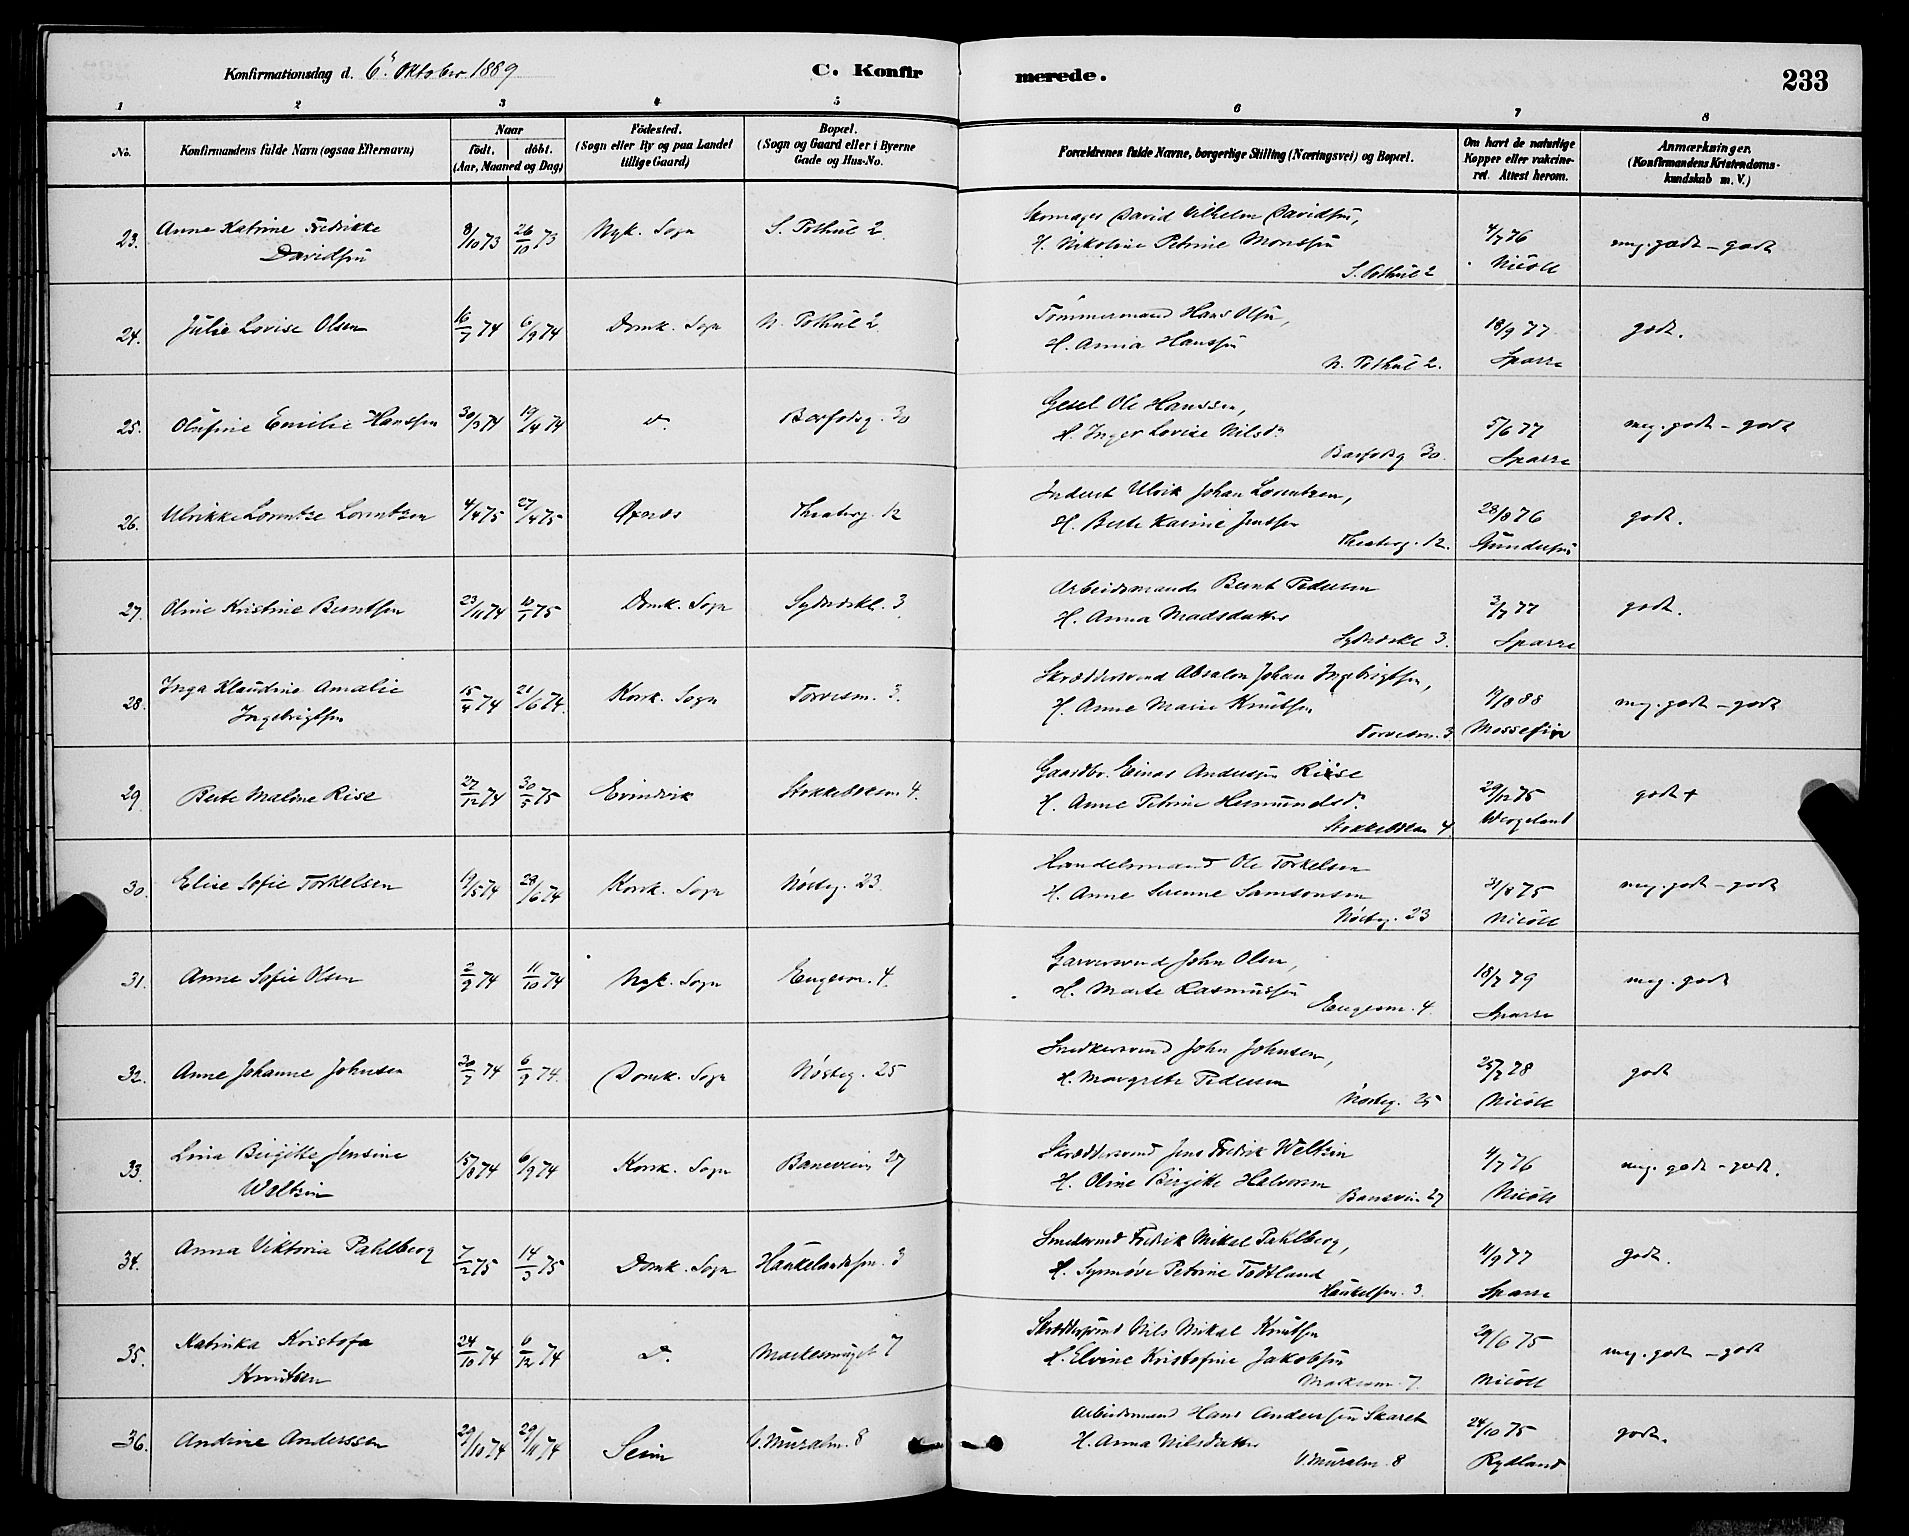 Konfirmationsdag d. 6' Oktober 1889
C. Konfirmerede.
233
1 2 3 4 5 6 7 8
No.
Konfirmandens fulde Navn (ogsaa Efternavn)
Naar
födt. döbt.
(Aar, Maaned og Dag)
Födested.
(Sogn eller By og paa Landet
tillige Gaard)
Bopæl.
(Sogn og Gaard eller i Byerne
Gade og Hus-No.
Forældrenes fulde Navne, borgerlige Stilling (Næringsvei) og Bopæl.
Om havt de naturlige
Kopper eller vakcine-
ret. Attest herom.
Anmærkninger.
(Konfirmandens Kristendoms-
kundskab m. V.)
23. Anne Katrine Fredrikke 8/10 73 26/10 73 Nyk. Sogn S. Pothul 2 Skomager David Vilhelm Davidsen, 4/7 76 meg. godt - godt
Davidsen H. Nikoline Petrine Monssen Nicoll
S. Pothul 2
24. Julie Lovise Olsen 16/7 74 6/9 74 Domk. Sogn N. Pothul 2 Tømmermand Hans Olsen, 18/9 77 godt.
H. Anna Hanssen Sparre
N. Pothul 2.
25. Olufine Emilie Hanssen 30/3 74 19/4 74 d. Barfodsg. 30 Gesel Ole Hanssen, 5/6 77 meg. godt - godt
H. Inger Lovise Nilsdr. Sparre
Barfodsg 30.
26. Ulrikke Lorentze Lorentzen 4/4 75 27/4 75 Øxnæs Theaterg. 12 Inderst Ulrik Johan Lorentzen, 28/8 76 godt.
H. Berte Karine Jenssen Gundersen
Theaterg. 12.
27. Oline Kristine Berntsen 23/11 74 Domk. Sogn Sydnæskl. 3 Arbeidsmand Bernt Pedersen 3/7 77 godt.
H. Anna Madsdatter Sparre
Sydnæskl 3.
28. Inga Klaudine Amalie 15/4 74 21/6 74. Korsk. Sogn Torvesm. 3. Skræddersvend Absalon Johan Ingebrigtsen, 17/8 88 meg. godt - godt
Ingebrigtsen H. Anne Marie Knutsen
Torvesm. 3
29 Berte Maline Rise 27/12 74 30/5 75 Evindvik Stokkebkssm 4. Gaardbr. Einar Andersen Riise 29/12 75 godt +
H. Anne Petrine Hermundsd. Wergeland
4.
30. Elise Sofie Torkelsen 19/5 74 28/6 74 Korsk. Sogn Nösteg. 23. Handelsmand Ole Torkelsen 31/8 75 meg. godt - godt
H. Anne Serenne Samsonsen Nicoll
Nösteg. 23
31. Anne Sofie Olsen 2/9 74 11/10 74 Nyk. Sogn Engesm. 4. Garversvend John Olsen, 18/7 79 meg. godt
H. Marte Rasmussen Sparre
Engesm. 4.
32. Anne Johanne Johnsen 30/7 74 6/9 74. Domk. Sogn Nösteg. 25 Snedkersvend John Johnsen, 25/7 78 godt
H. Margrete Pedersen Nicoll
Nösteg. 25
33. Lina Birgitte Jensine 15/8 74 6/9 74 Korsk. Sogn Baneveien 27 Skræddersvend Jens Fredrik Weltzin 4/7 76 meg. godt - godt.
Weltzin H. Oline Birgitte Halvorsen Nicoll
Banevein 27
34. Anna Viktoria Pahlberg 7/2 75 14/3 75 Domk. Sogn Haukelandssm. 3 Smedsvend Fredrik Mikal Pahlberg, 4/9 77 godt.
H. Synnöve Petrine Todtland Sparre
Haukelsm. 3.
35. Katinka Kristofa 24/10 74 6/12 74 d. Markesmuget 7 Skræddersvend Nils Mikal Knutsen 29/6 75 meg. godt - godt
Knutsen H. Elvine Kristofine Jakobsen Nicoll
Markesm. 7.
36. Andrine Anderssen 29/10 74 29/11 74 Seim V. Muralm. 8 Arbeidsmand Hans Anderssen Skaret 24/10 75 godt.
H. Anna Nilsdatter Rydland
V. Muralm. 8